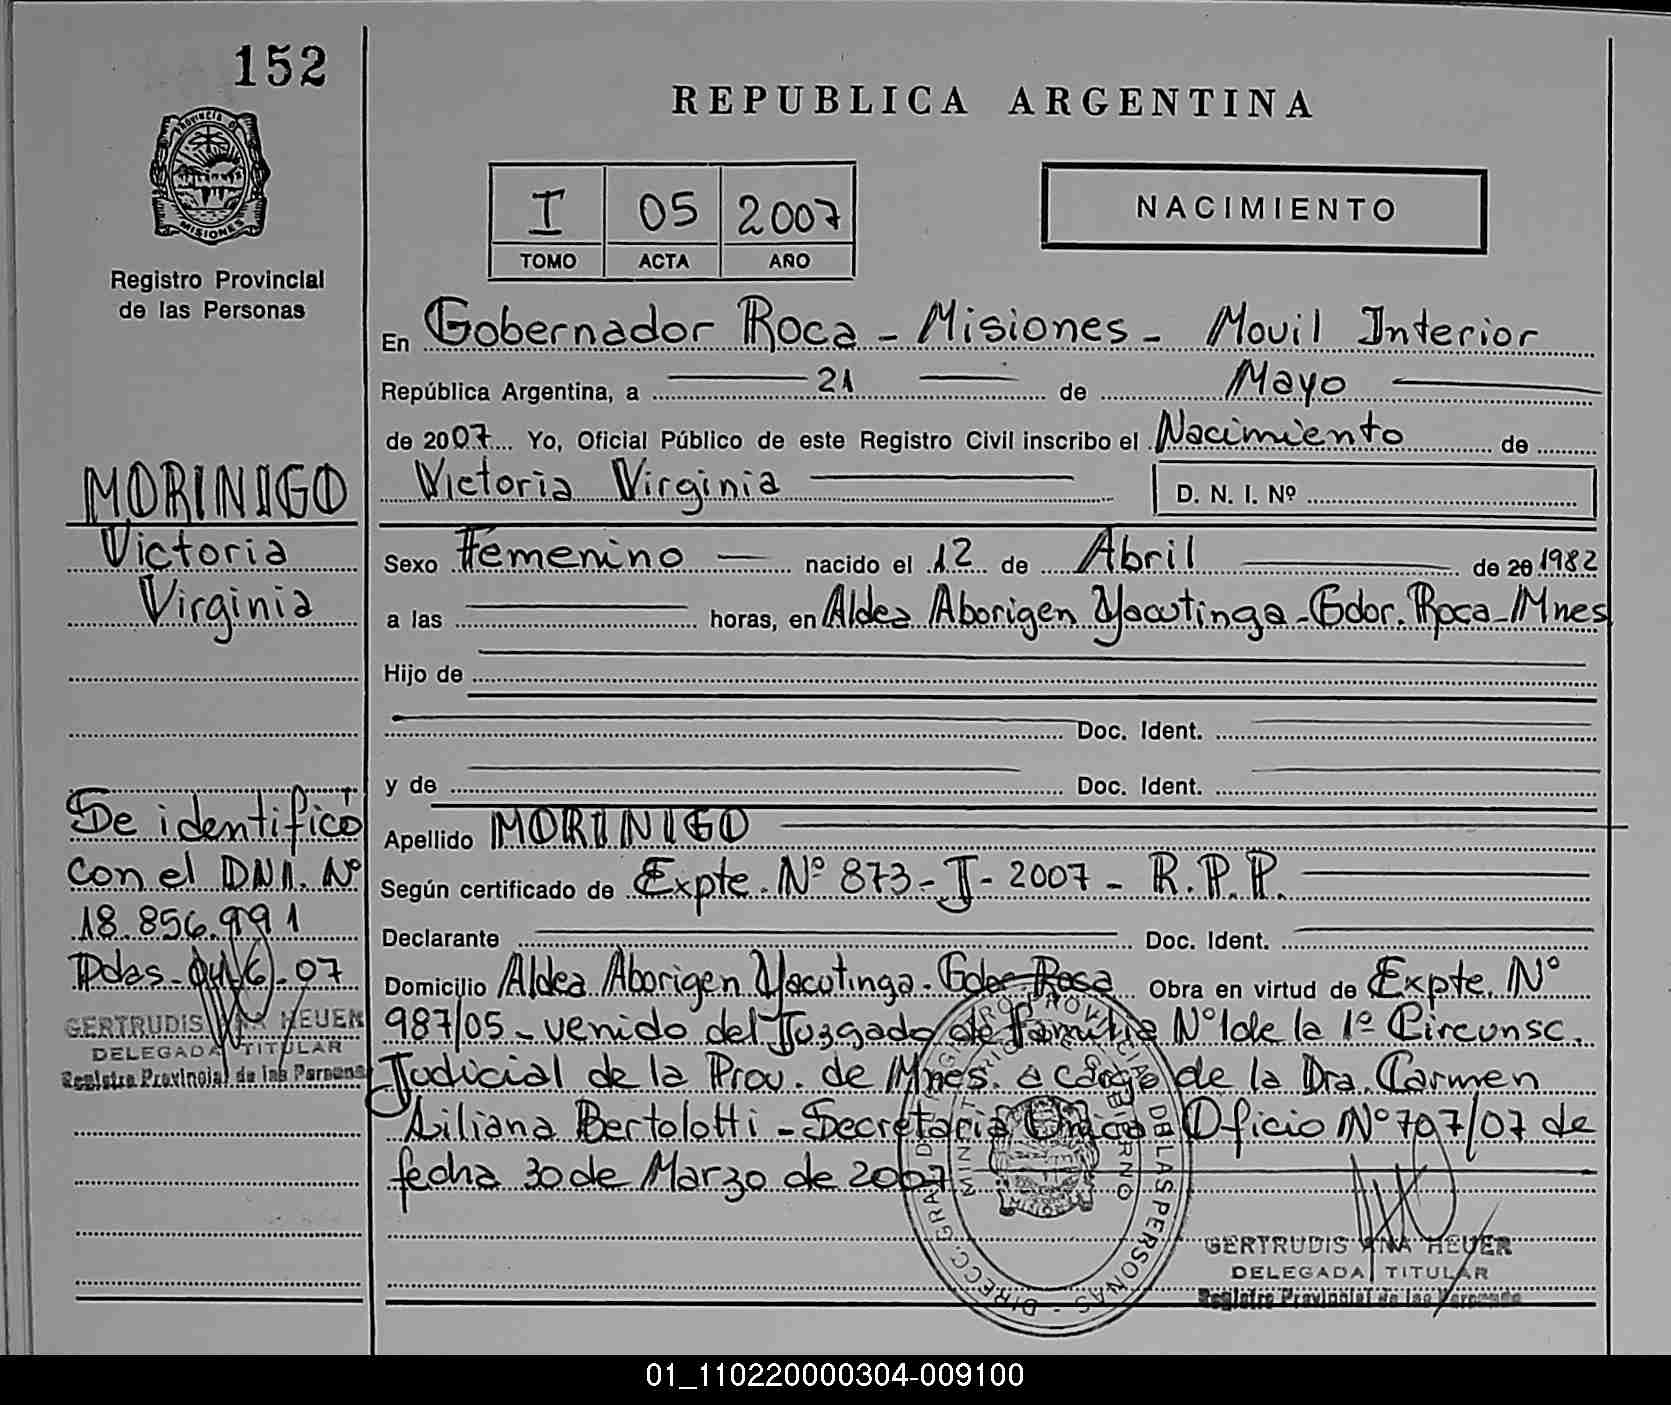 152
REPUBLICA ARGENTINA
PROVINCIA DE
MISIONES
Registro Provincial
de las Personas
I 05 2007
TOMO ACTA AÑO
NACIMIENTO
En Gobernador Roca - Misiones - Movil Interior
República Argentina, a 21 de Mayo
de 2007 Yo, Oficial Público de este Registro Civil inscribo el Nacimiento de
Victoria Virginia
D. N. I. Nº
MORINIGO
Victoria
Virginia
Sexo Femenino nacido el 12 de Abril de 20 1982
a las horas, en Aldea Aborigen Yacutinga - Gdor. Roca - Mnes
Hijo de
Doc. Ident.
y de Doc. Ident.
Apellido MORINIGO
Según certificado de Expte. Nº 873 - J - 2007 - R.P.P.
Declarante Doc. Ident.
Domicilio Aldea Aborigen Yacutinga - Gdor Roca Obra en virtud de Expte. Nº
987/05 - venido del Juzgado de Familia Nº 1 de la 1º Circunsc.
Judicial de la Prov. de Mnes. a cargo de la Dra. Carmen
Liliana Bertolotti - Secretaria Única Oficio Nº 707/07 de
fecha 30 de Marzo de 2007
Se identificó
con el DNI. Nº
18.856.991
Pdas - 07
GERTRUDIS ANA HEUER
DELEGADA TITULAR
Registro Provincial de las Personas
DIRECC. GRAL. DEL REGISTRO PROVINCIAL DE LAS PERSONAS
MINISTERIO DE GOBIERNO
GERTRUDIS ANA HEUER
DELEGADA TITULAR
Registro Provincial de las Personas
01_110220000304-009100